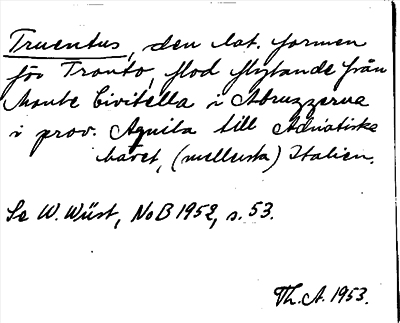 Truentus, den lat. formen
för Tronto, flod flytande från
Monte Civitella i Abruzzerna
i prov. Aquila till Adriatiska
havet, (mellersta) Italien.
Se W. Wüst, NoB 1952, s. 53.
Th. A. 1953.